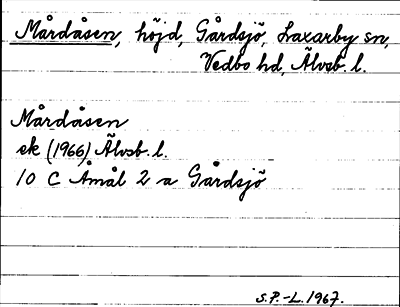 Mårdåsen, höjd, Gårdsjö, Laxarby sn,
Vedbo hd, Älvsb. l.
Mårdåsen
ek (1966) Älvsb. l.
10 C Åmål 2 a Gårdsjö
S.P.-L. 1967.